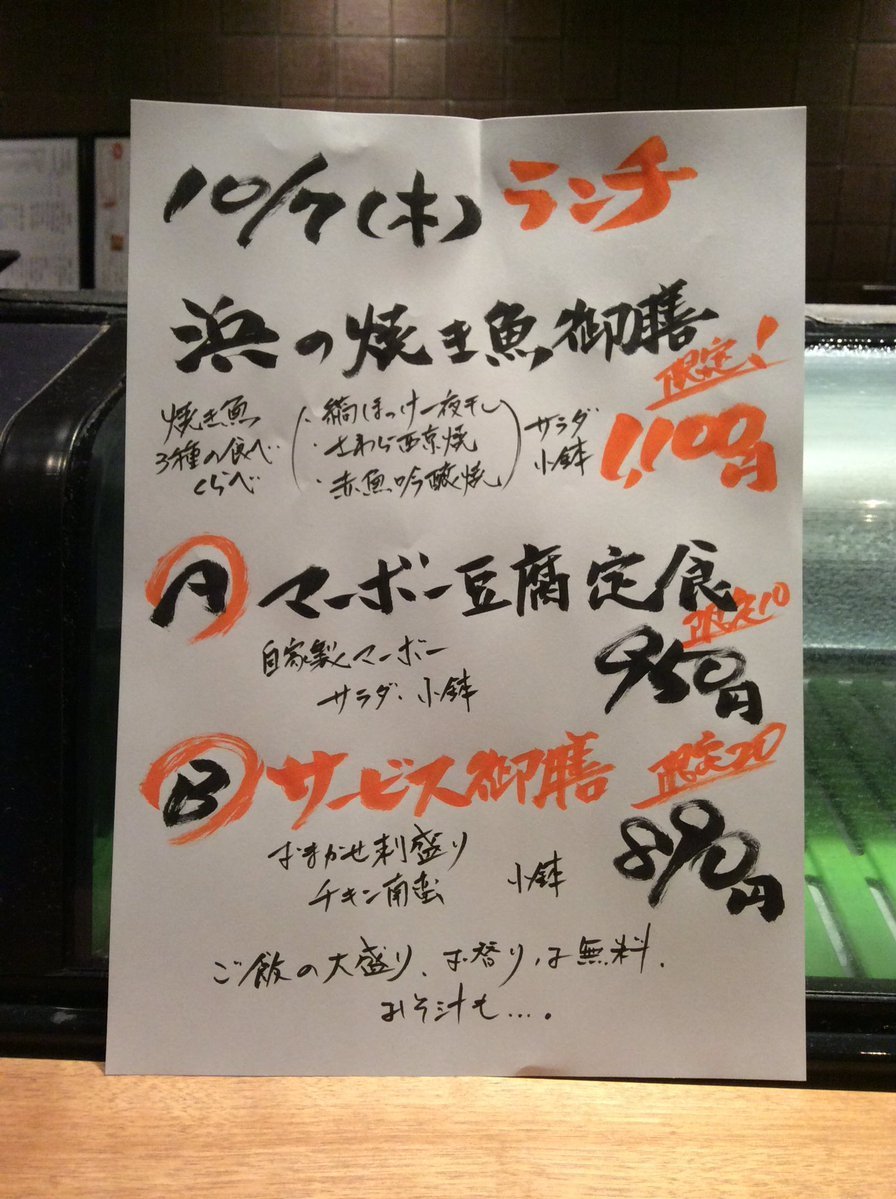 10/7(木) ランチ
浜の焼き魚御膳
限定!
焼き魚
3種の食べ
くらべ
・縞ほっけ一夜干し
・さわら西京焼
・赤魚吟醸焼
サラダ
小鉢
1,100円
A マーボー豆腐定食
限定10
自家製マーボー
サラダ、小鉢
950円
B サービス御膳 限定20
おまかせ刺盛り
チキン南蛮 小鉢
890円
ご飯の大盛り、お替りは無料、
おみそ汁も….